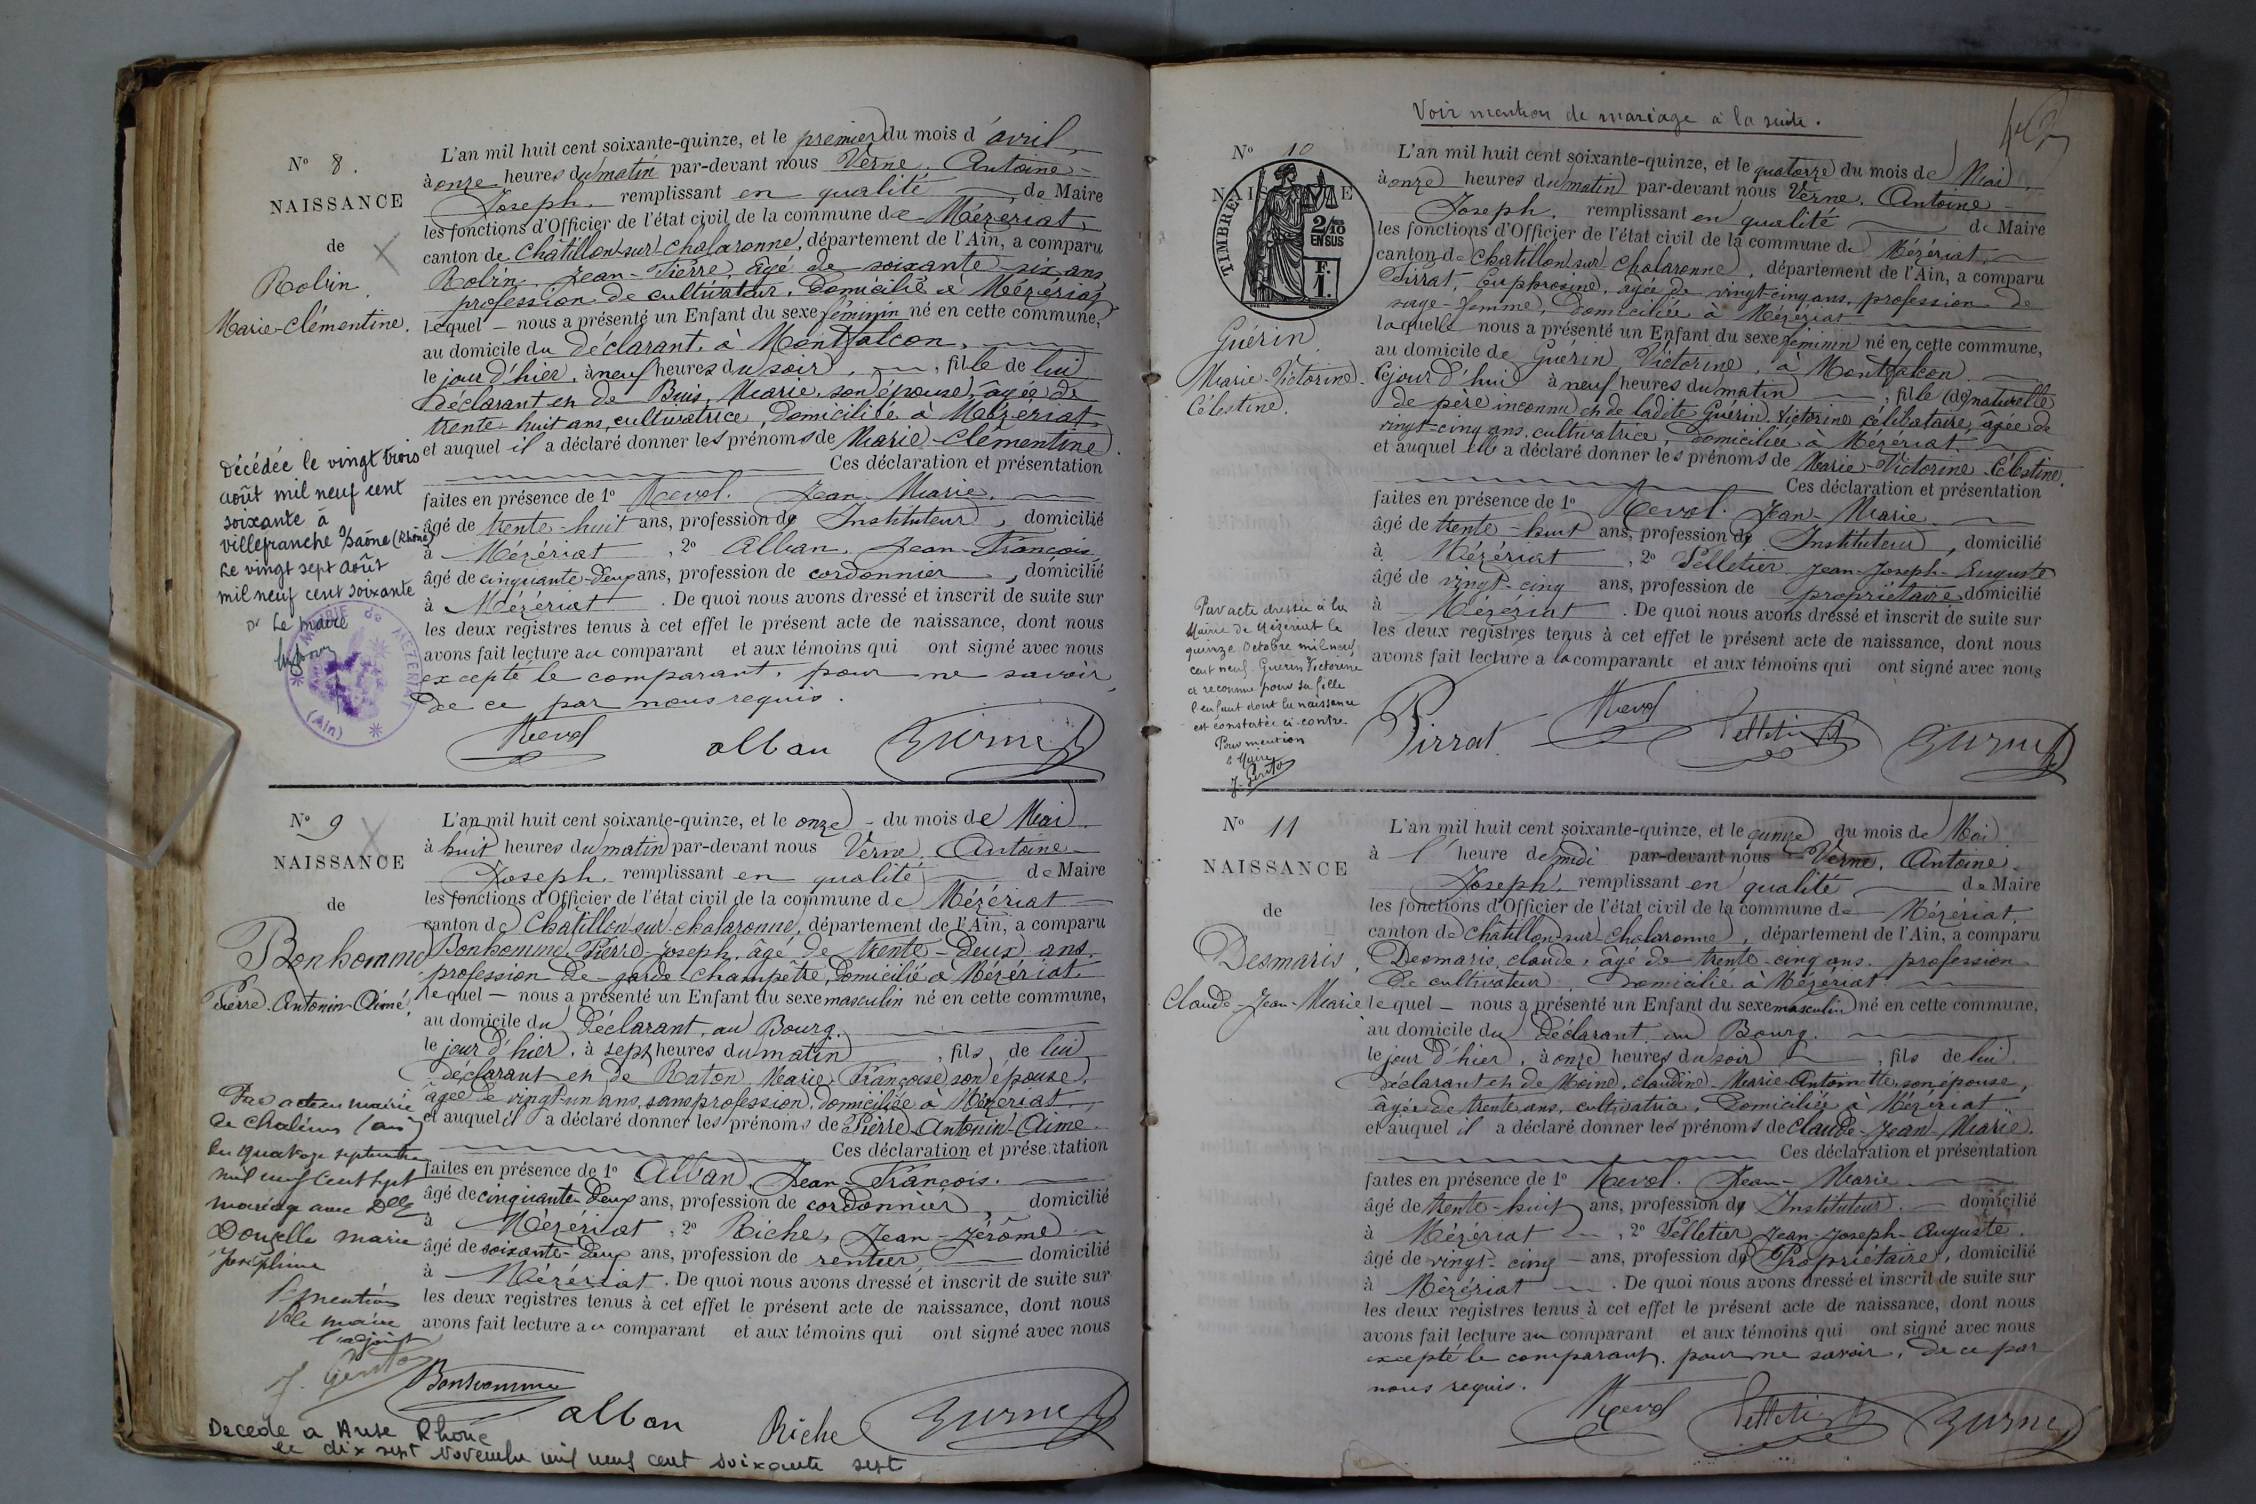 N° 8.
NAISSANCE
de
Robin
Marie-Clémentine.
L'an mil huit cent soixante-quinze, et le premier du mois d'avril,
à onze heures du matin par-devant nous Verne, Antoine-
Joseph, remplissant en qualité de Maire
les fonctions d'Officier de l'état civil de la commune de Mézériat,
canton de Châtillon-sur-Chalaronne, département de l'Ain, a comparu
Robin, Jean-Pierre, âgé de soixante six ans,
profession de cultivateur, domicilié à Mézériat,
lequel — nous a présenté un Enfant du sexe féminin né en cette commune,
au domicile du déclarant, à Montfalcon,
le jour d'hier, à neuf heures du soir, fille de lui
déclarant et de Buis, Marie, son épouse, âgée de
trente-huit ans, cultivatrice, domiciliée à Mézériat
et auquel il a déclaré donner les prénoms de Marie-Clémentine.
Ces déclaration et présentation
faites en présence de 1° Revol, Jean-Marie,
âgé de trente-huit ans, profession de Instituteur, domicilié
à Mézériat, 2° Alban, Jean-François,
âgé de cinquante-deux ans, profession de cordonnier, domicilié
à Mézériat. De quoi nous avons dressé et inscrit de suite sur
les deux registres tenus à cet effet le présent acte de naissance, dont nous
avons fait lecture au comparant et aux témoins qui ont signé avec nous
excepté le comparant, pour ne savoir,
de ce par nous requis.
Revol alban Verne
Décédée le vingt trois
août mil neuf cent
soixante à
Villefranche s/Saône (Rhône)
Le vingt sept août
mil neuf cent soixante
Le maire
MAIRIE de MEZERIAT
(Ain)
N° 9
NAISSANCE
de
Bonhomme
Pierre-Antonin-Aimé.
L'an mil huit cent soixante-quinze, et le onze du mois de Mai
à huit heures du matin par-devant nous Verne, Antoine-
Joseph, remplissant en qualité de Maire
les fonctions d'Officier de l'état civil de la commune de Mézériat
canton de Châtillon-sur-Chalaronne, département de l'Ain, a comparu
Bonhomme, Pierre-Joseph, âgé de trente-deux ans,
profession de garde champêtre, domicilié à Mézériat,
lequel — nous a présenté un Enfant du sexe masculin né en cette commune,
au domicile du déclarant, au Bourg,
le jour d'hier, à sept heures du matin, fils de lui
déclarant et de Raton, Marie-Françoise, son épouse,
âgée de vingt-un ans, sans profession, domiciliée à Mézériat,
et auquel il a déclaré donner les prénoms de Pierre-Antonin-Aimé.
Ces déclaration et présentation
faites en présence de 1° Alban, Jean-François,
âgé de cinquante deux ans, profession de cordonnier, domicilié
à Mézériat, 2° Riche, Jean-Jérôme
âgé de soixante-deux ans, profession de rentier, domicilié
à Mézériat. De quoi nous avons dressé et inscrit de suite sur
les deux registres tenus à cet effet le présent acte de naissance, dont nous
avons fait lecture au comparant et aux témoins qui ont signé avec nous
Bonhomme alban Riche Verne
Par acte en mairie
de (ain)
du quatorze septembre
mil neuf cent sept
mariage avec Dlle
Douzelle marie
Joséphine
P. mention
P. le maire
l'adjoint
Décédé a Anse Rhône
le dix sept Novembre mil neuf cent soixante sept
Voir mention de mariage à la suite.
N° 10
NAISSANCE
TIMBRE
2/10
EN SUS
F.
1.
Guérin
Marie-Victorine-
Célestine.
L'an mil huit cent soixante-quinze, et le quatorze du mois de Mai,
à onze heures du matin par-devant nous Verne, Antoine-
Joseph, remplissant en qualité de Maire
les fonctions d'Officier de l'état civil de la commune de Mézériat,
canton de Châtillon-sur-Chalaronne, département de l'Ain, a comparu
Pirrat, Euphrosine, âgée de vingt-cinq ans, profession de
sage-femme, domiciliée à Mézériat
laquelle nous a présenté un Enfant du sexe féminin né en cette commune,
au domicile de Guérin Victorine, à Montfalcon
le jour d'hui à neuf heures du matin, fille (de) naturelle
de père inconnu et de ladite Guérin Victorine célibataire, âgée de
vingt-cinq ans, cultivatrice, domiciliée à Mézériat
et auquel elle a déclaré donner les prénoms de Marie-Victorine-Célestine.
Ces déclaration et présentation
faites en présence de 1° Revol, Jean-Marie
âgé de trente-huit ans, profession de Instituteur, domicilié
à Mézériat, 2° Pelletier Jean-Joseph-Auguste
âgé de vingt-cinq ans, profession de propriétaire domicilié
à Mézériat. De quoi nous avons dressé et inscrit de suite sur
les deux registres tenus à cet effet le présent acte de naissance, dont nous
avons fait lecture a la comparante et aux témoins qui ont signé avec nous
Pirrat Revol Pelletier Verne
Par acte dressé à la
Mairie de Mézériat le
quinze Octobre mil neuf
cent neuf Guérin Victorine
a reconnu pour sa fille
l'enfant dont la naissance
est constatée ci-contre
Pour mention
Maire
N° 11
NAISSANCE
de
Desmaris,
Claude-Jean-Marie
L'an mil huit cent soixante-quinze, et le quinze du mois de Mai
à l'heure de midi par-devant nous Verne, Antoine-
Joseph, remplissant en qualité de Maire
les fonctions d'Officier de l'état civil de la commune de Mézériat,
canton de Châtillon-sur-Chalaronne, département de l'Ain, a comparu
Desmaris, Claude, âgé de trente-cinq ans, profession
de cultivateur, domicilié à Mézériat
lequel — nous a présenté un Enfant du sexe masculin né en cette commune,
au domicile du déclarant, au Bourg.
le jour d'hier, à onze heures du soir, fils de lui
déclarant et de Moine, Claudine-Marie-Antoinette, son épouse,
âgée de trente ans, cultivatrice, domiciliée à Mézériat
et auquel il a déclaré donner les prénoms de Claude-Jean-Marie.
Ces déclaration et présentation
faites en présence de 1° Revol, Jean-Marie
âgé de trente-huit ans, profession de Instituteur, domicilié
à Mézériat, 2° Pelletier Jean-Joseph-Auguste,
âgé de vingt-cinq ans, profession de Propriétaire, domicilié
à Mézériat. De quoi nous avons dressé et inscrit de suite sur
les deux registres tenus à cet effet le présent acte de naissance, dont nous
avons fait lecture au comparant et aux témoins qui ont signé avec nous
excepté le comparant, pour ne savoir, de ce par
nous requis.
Revol Pelletier Verne